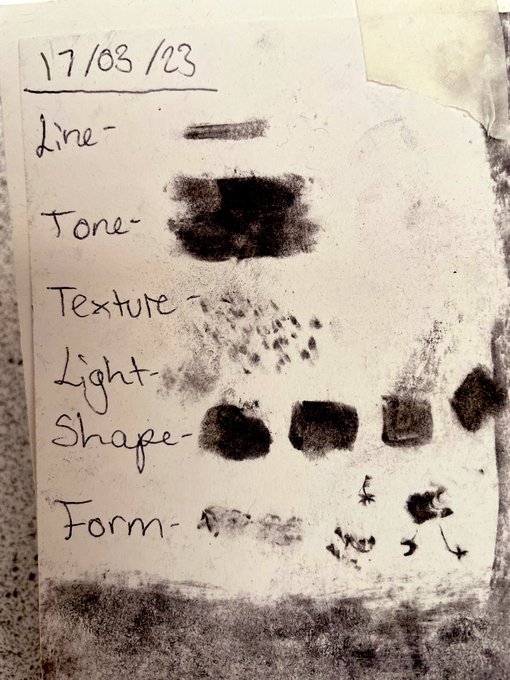 17/03/23
Line-
Tone-
Texture-
Light-
Shape-
Form-